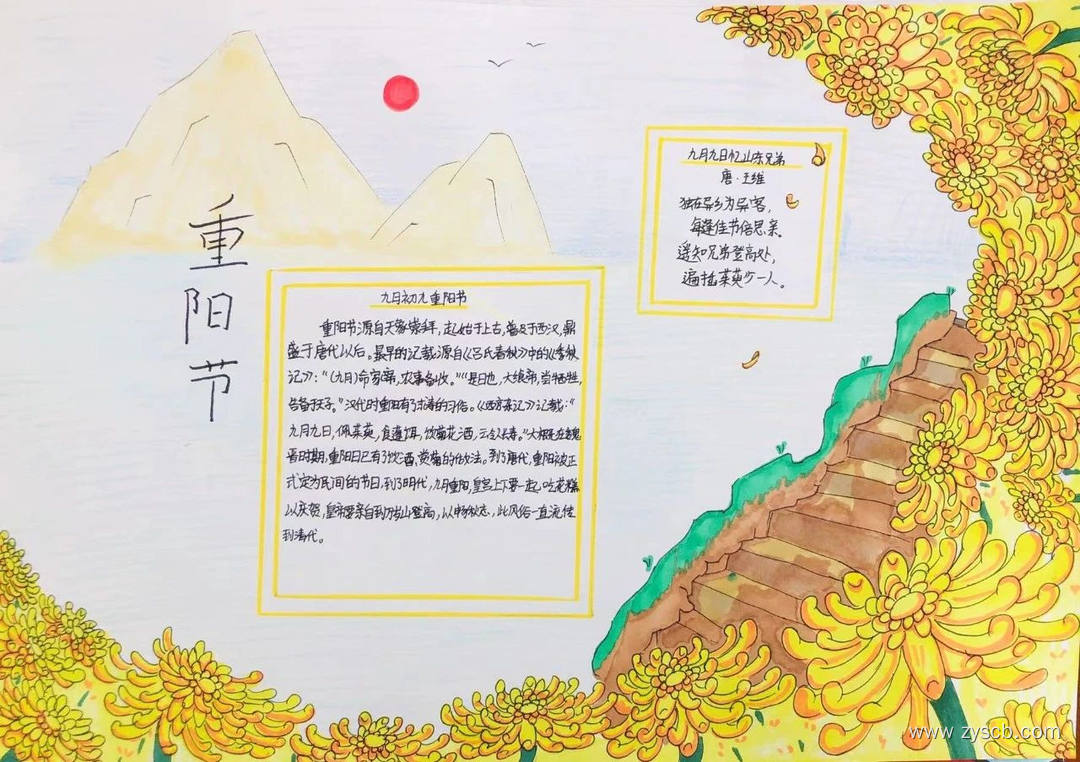 重阳节
九月初九重阳节
重阳节源自天象崇拜,起始于上古,普及于西汉,鼎
盛于唐代以后。最早的记载源自《吕氏春秋》中的《季秋
记》:“(九月)命家宰,农事备收。”“是日也,大飨帝,尝牺牲,
告备于天子。”汉代时重阳有了求寿的习俗。《西京杂记》记载:“
九月九日,佩茱萸,食蓬饵,饮菊花酒,云令人长寿。”大概在魏
晋时期,重阳日已有了饮酒、赏菊的做法。到了唐代,重阳被正
式定为民间的节日,到了明代,九月重阳,皇宫上下要一起吃花糕
以庆贺,皇帝要亲自到万岁山登高,以畅秋志,此风俗一直流传
到清代。
九月九日忆山东兄弟
唐·王维
独在异乡为异客,
每逢佳节倍思亲。
遥知兄弟登高处,
遍插茱萸少一人。
www.zyscb.com